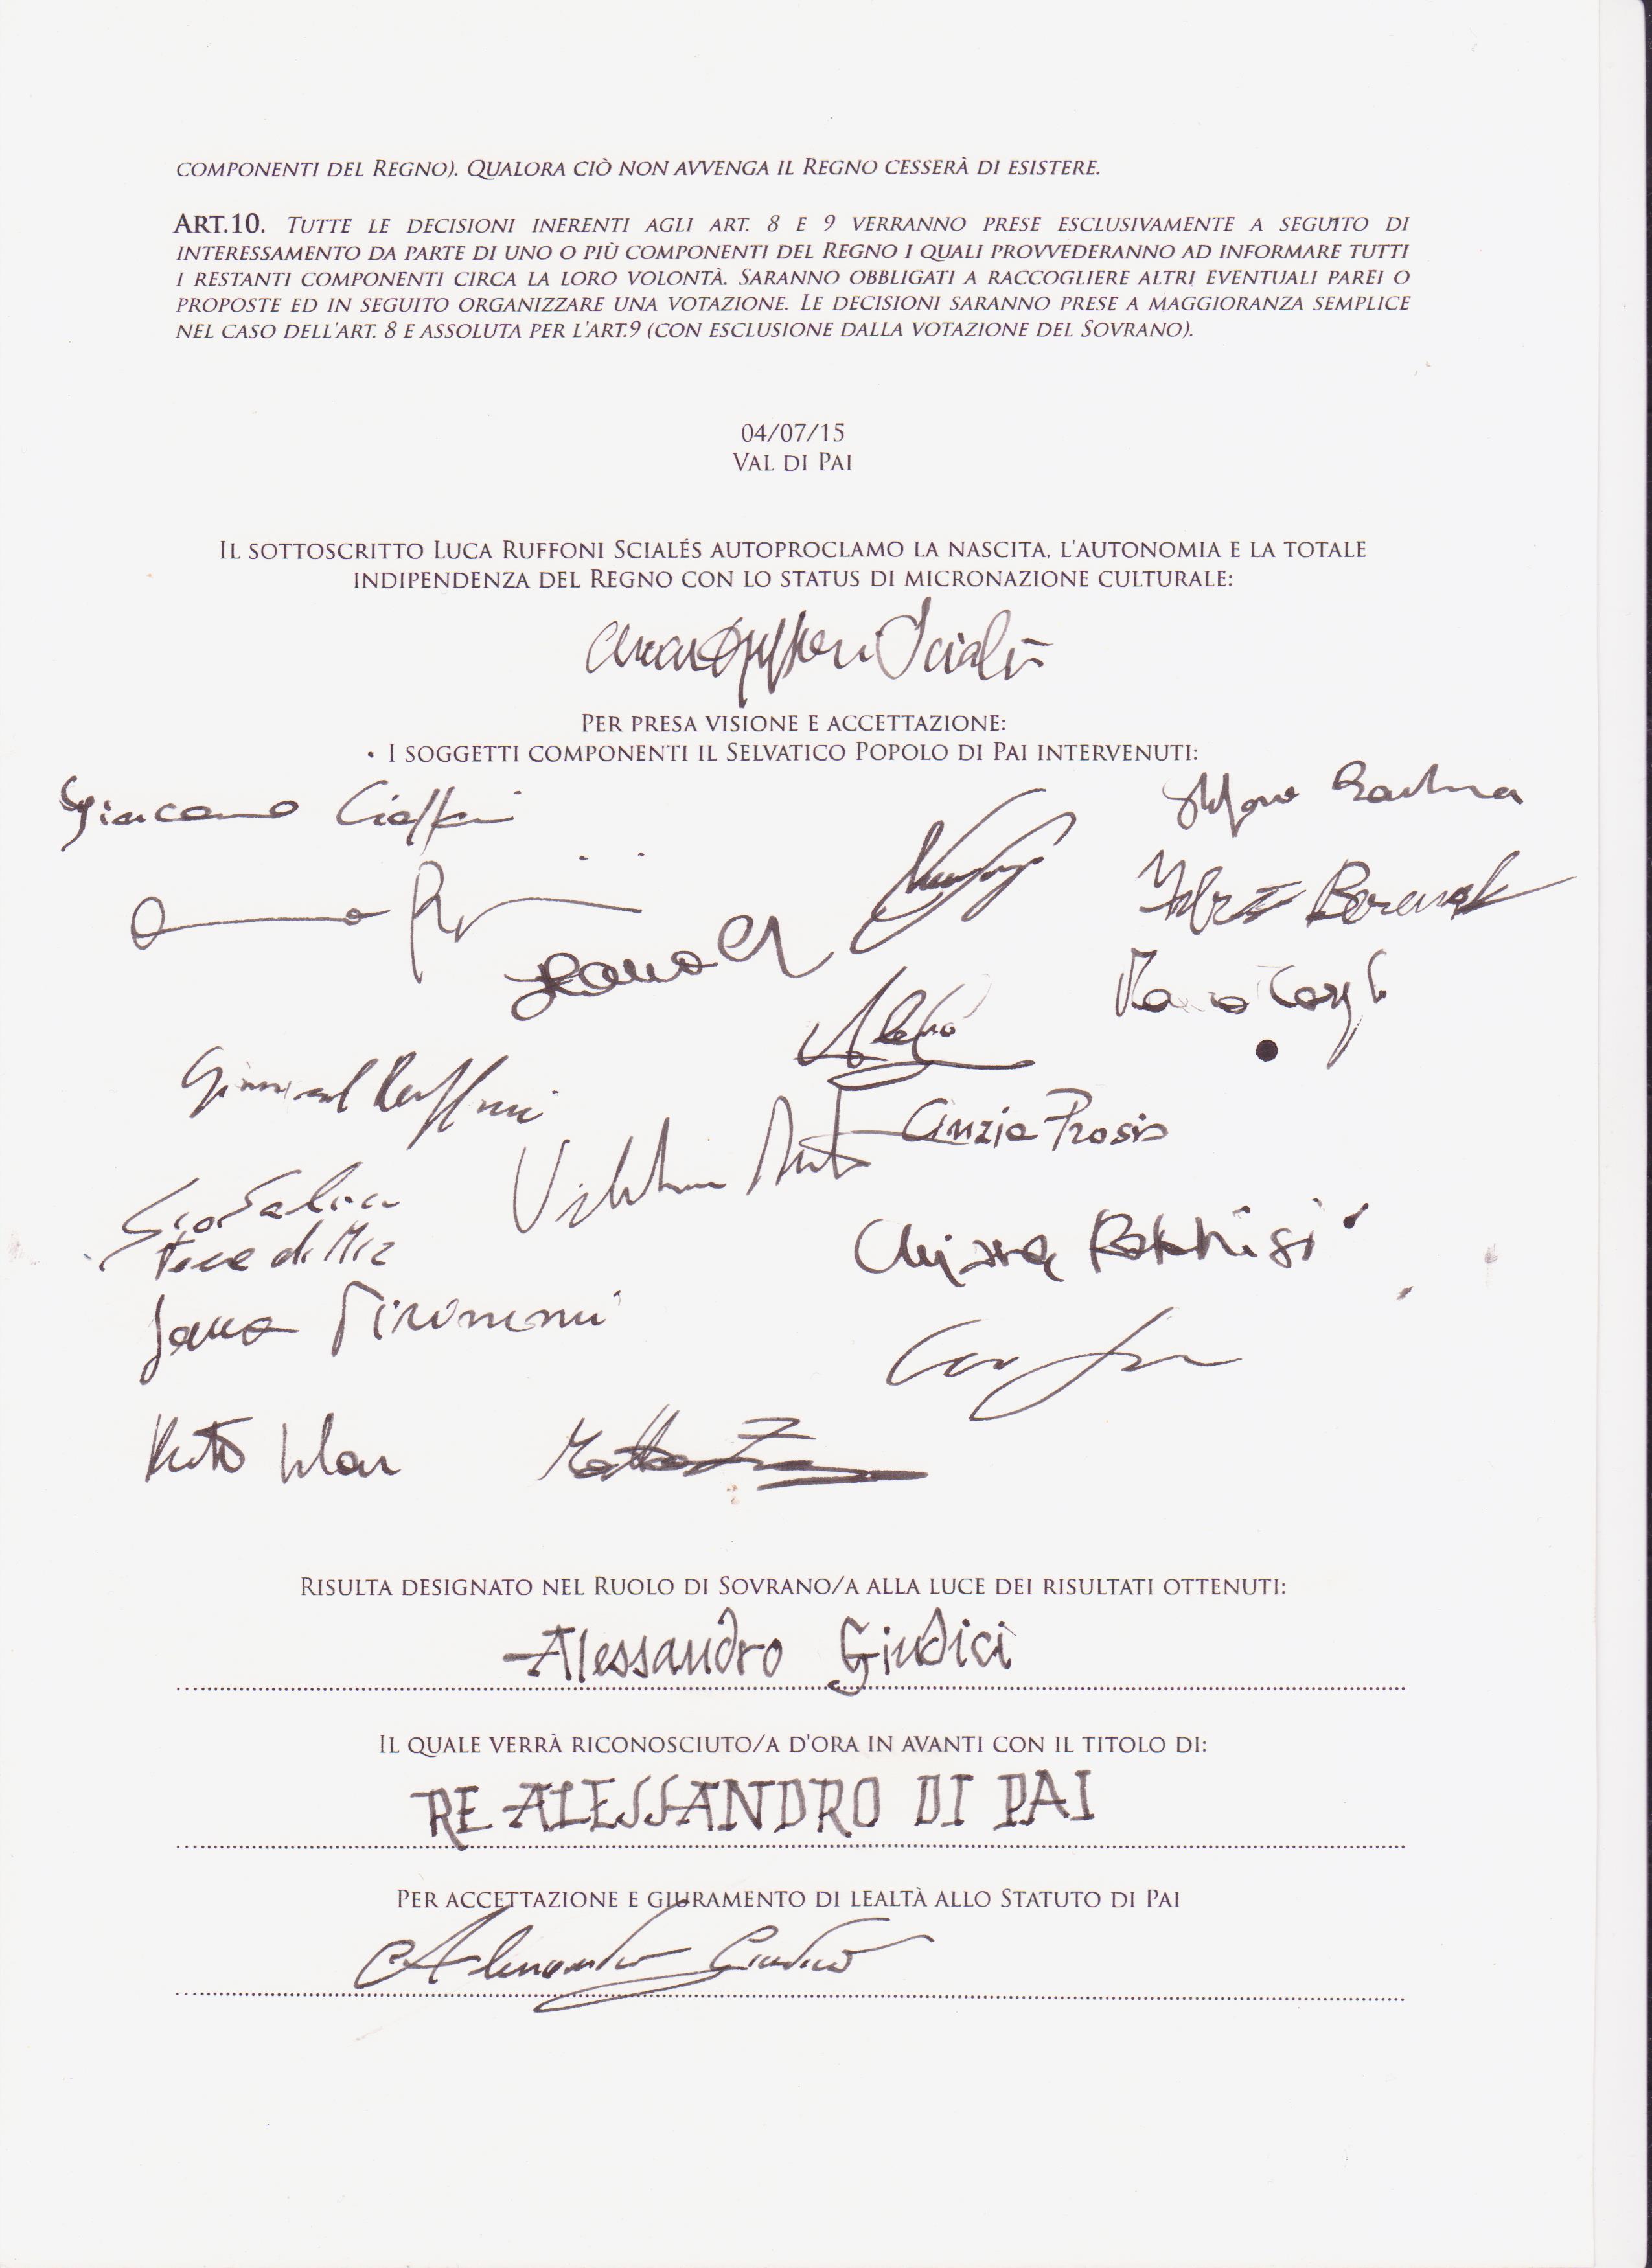 COMPONENTI DEL REGNO). QUALORA CIÒ NON AVVENGA IL REGNO CESSERÀ DI ESISTERE.
ART.10. TUTTE LE DECISIONI INERENTI AGLI ART. 8 E 9 VERRANNO PRESE ESCLUSIVAMENTE A SEGUITO DI
INTERESSAMENTO DA PARTE DI UNO O PIÙ COMPONENTI DEL REGNO I QUALI PROVVEDERANNO AD INFORMARE TUTTI
I RESTANTI COMPONENTI CIRCA LA LORO VOLONTÀ. SARANNO OBBLIGATI A RACCOGLIERE ALTRI EVENTUALI PAREI O
PROPOSTE ED IN SEGUITO ORGANIZZARE UNA VOTAZIONE. LE DECISIONI SARANNO PRESE A MAGGIORANZA SEMPLICE
NEL CASO DELL'ART. 8 E ASSOLUTA PER L'ART.9 (CON ESCLUSIONE DALLA VOTAZIONE DEL SOVRANO).
04/07/15
VAL DI PAI
IL SOTTOSCRITTO LUCA RUFFONI SCIALÉS AUTOPROCLAMO LA NASCITA, L'AUTONOMIA E LA TOTALE
INDIPENDENZA DEL REGNO CON LO STATUS DI MICRONAZIONE CULTURALE:
Luca Ruffoni Scialés
PER PRESA VISIONE E ACCETTAZIONE:
• I SOGGETTI COMPONENTI IL SELVATICO POPOLO DI PAI INTERVENUTI:
Giacomo
Cinzia Prosio
Chiara
Matteo
RISULTA DESIGNATO NEL RUOLO DI SOVRANO/A ALLA LUCE DEI RISULTATI OTTENUTI:
Alessandro Giudici
IL QUALE VERRÀ RICONOSCIUTO/A D'ORA IN AVANTI CON IL TITOLO DI:
RE ALESSANDRO DI PAI
PER ACCETTAZIONE E GIURAMENTO DI LEALTÀ ALLO STATUTO DI PAI
Alessandro Giudici